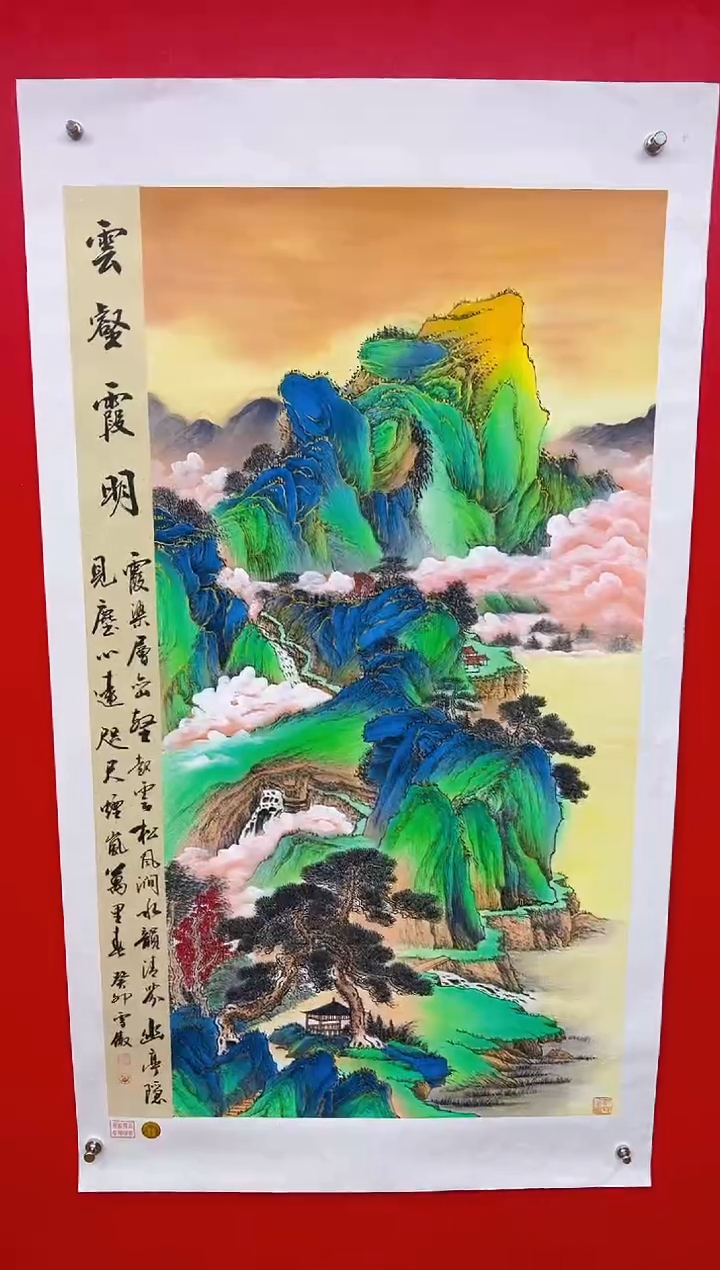 雲壑霞明
霞染層巒壑起雲松風澗水韻清芬幽亭隱
見塵心遠咫尺煙嵐萬里春 癸卯 雪傲